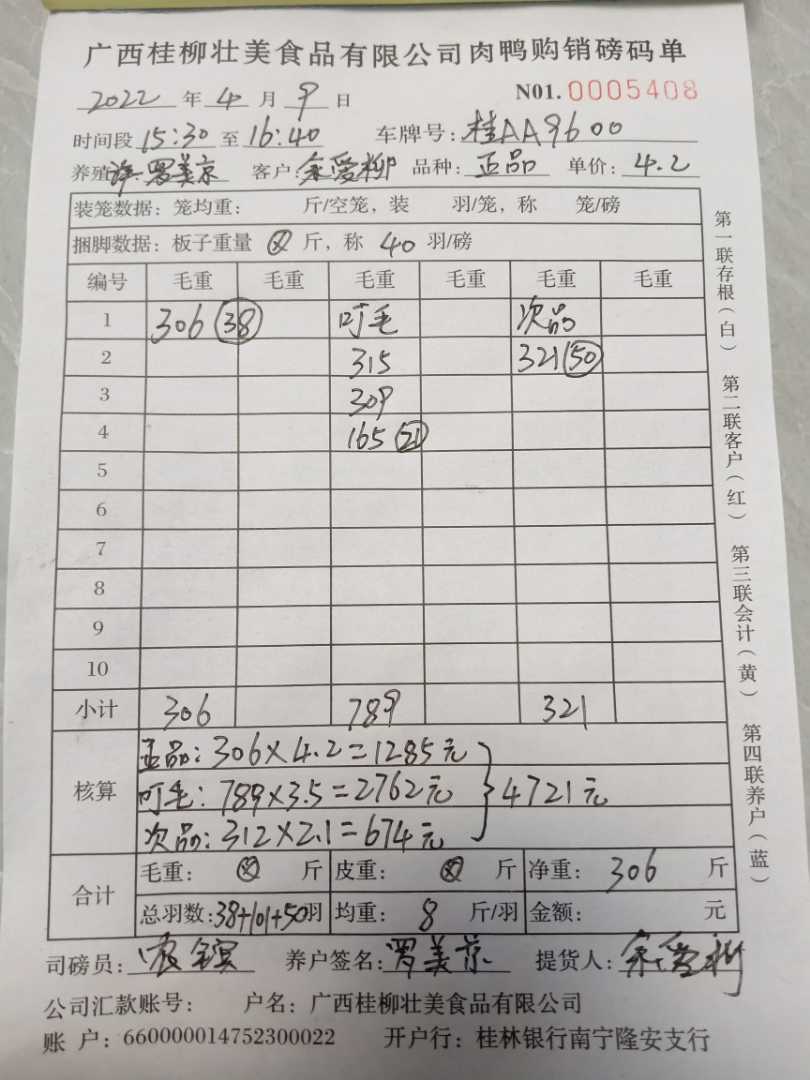 广西桂柳壮美食品有限公司肉鸭购销磅码单
2022 年 4 月 9 日 N01. 0005408
时间段 15:30 至 16:40 车牌号: 桂AA9600
养殖 罗美京 客户: 余爱柳 品种: 正品 单价: 4.2
装笼数据: 笼均重: 斤/空笼, 装 羽/笼, 称 笼/磅
捆脚数据: 板子重量 斤, 称 40 羽/磅
编号 毛重 毛重 毛重 毛重 毛重 毛重
1 306 38 叮毛 次品
2 315 321 50
3 309
4 165 21
5
6
7
8
9
10
小计 306 789 321
核算 正品: 306×4.2=1285元
叮毛: 789×3.5=2762元 4721元
次品: 312×2.1=674元
合计 毛重: 斤 皮重: 斤 净重: 306 斤
总羽数: 38+101+50羽 均重: 8 斤/羽 金额: 元
司磅员: 养户签名: 罗美京 提货人: 余爱柳
公司汇款账号: 户名: 广西桂柳壮美食品有限公司
账 户: 660000014752300022 开户行: 桂林银行南宁隆安支行
第一联存根(白) 第二联客户(红) 第三联会计(黄) 第四联养户(蓝)